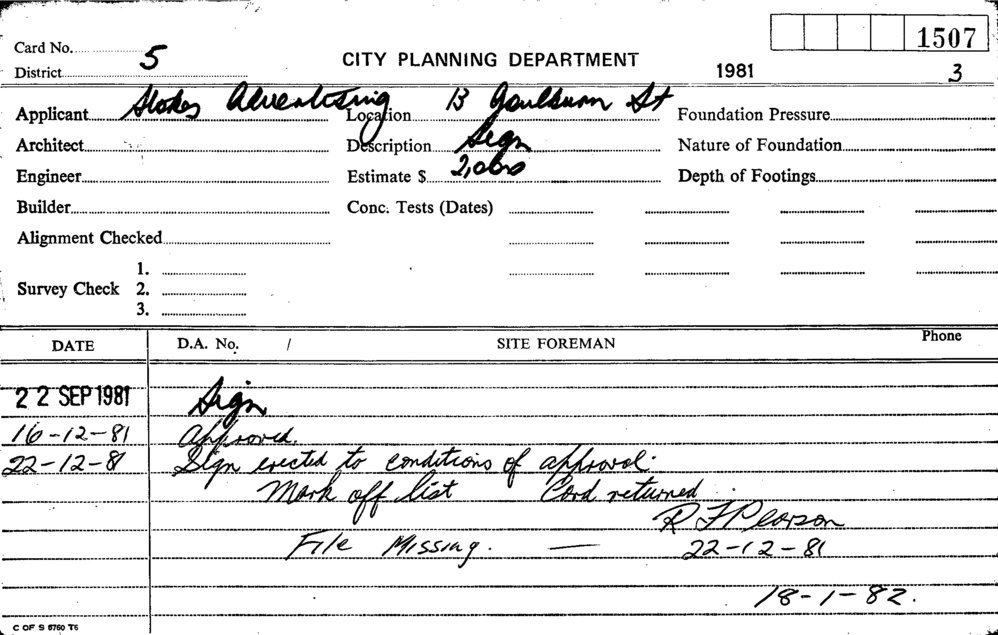 Card No. 5 1507
District CITY PLANNING DEPARTMENT 1981 3
Applicant Stokes Advertising Location 13 Goulburn St Foundation Pressure
Architect Description Sign Nature of Foundation
Engineer Estimate $ 2,000 Depth of Footings
Builder Conc. Tests (Dates)
Alignment Checked
1.
Survey Check 2.
3.
DATE D.A. No. / SITE FOREMAN Phone
22 SEP 1981 Sign
16-12-81 Approved.
22-12-81 Sign erected to conditions of approval.
Mark off list Card returned
R F Pearson
File Missing. — 22-12-81
18-1-82.
C OF S 8760 T6